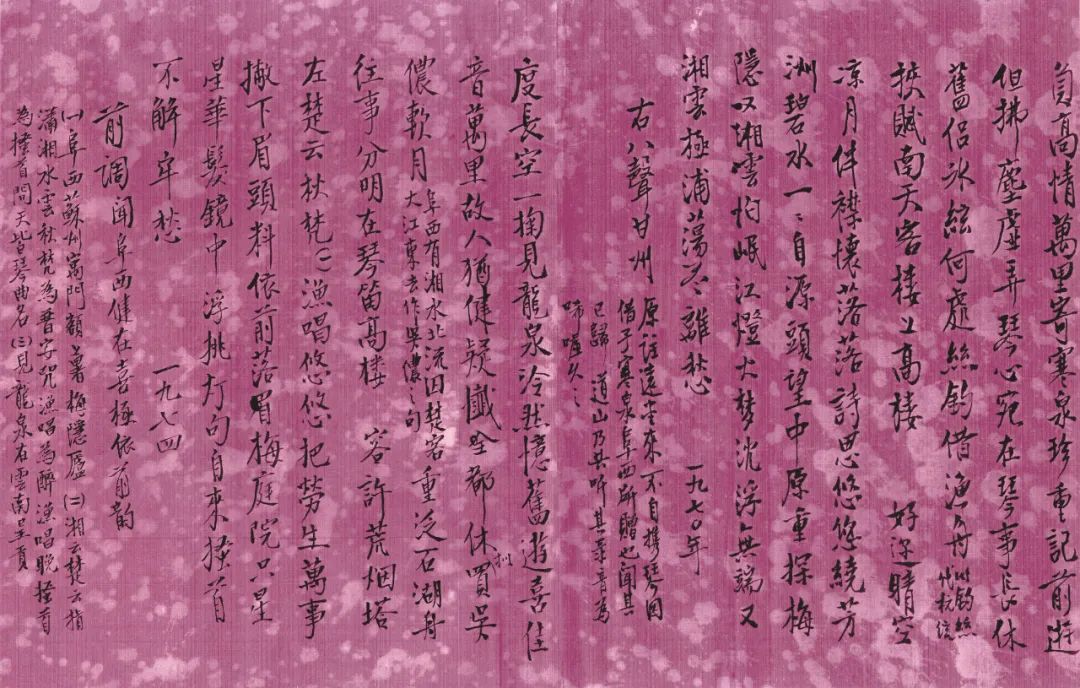 負高情萬里寄寒泉珍重記前遊
但拂塵虛弄琴心宛在琴事長休
舊侶冰絃何處絲釣借漁舟
狹賦南天客樓上高樓　好遲晴空
涼月伴襟懷落落詩思悠悠繞芳
洲碧水一一自源頭望中原重探梅
隱又湘雲怕岷江燈火夢沈浮無端又
湘雲極浦蕩不盡離愁
右八聲甘州　一九七〇年
原註遠坐來不自攜琴因
借予寒泉阜西所贈也聞其
已歸道山乃共聽其录音為
唏噓久之
度長空一掬見龍泉泠然憶舊遊喜佳
音萬里故人猶健疑讖全都休買吳
儂軟月
阜西有湘水北流因楚客重泛石湖舟
大江東去作吳儂之句
往事分明在琴笛高樓　容許荒烟塔
左楚云秋梵(二)漁唱悠悠把勞生萬事
撇下眉頭料依前落眉梅庭院只星
星華髮鏡中浮挑灯句自來搔首
不解牢愁　一九七四
前調聞阜西健在喜極依前韵
(一)阜西蘇州寓門額署梅隱廬(二)湘云楚云指
瀟湘水雲秋梵為普安咒漁唱為醉漁唱晚搔首
為搔首問天皆琴曲名(三)見龍泉在雲南呈貢